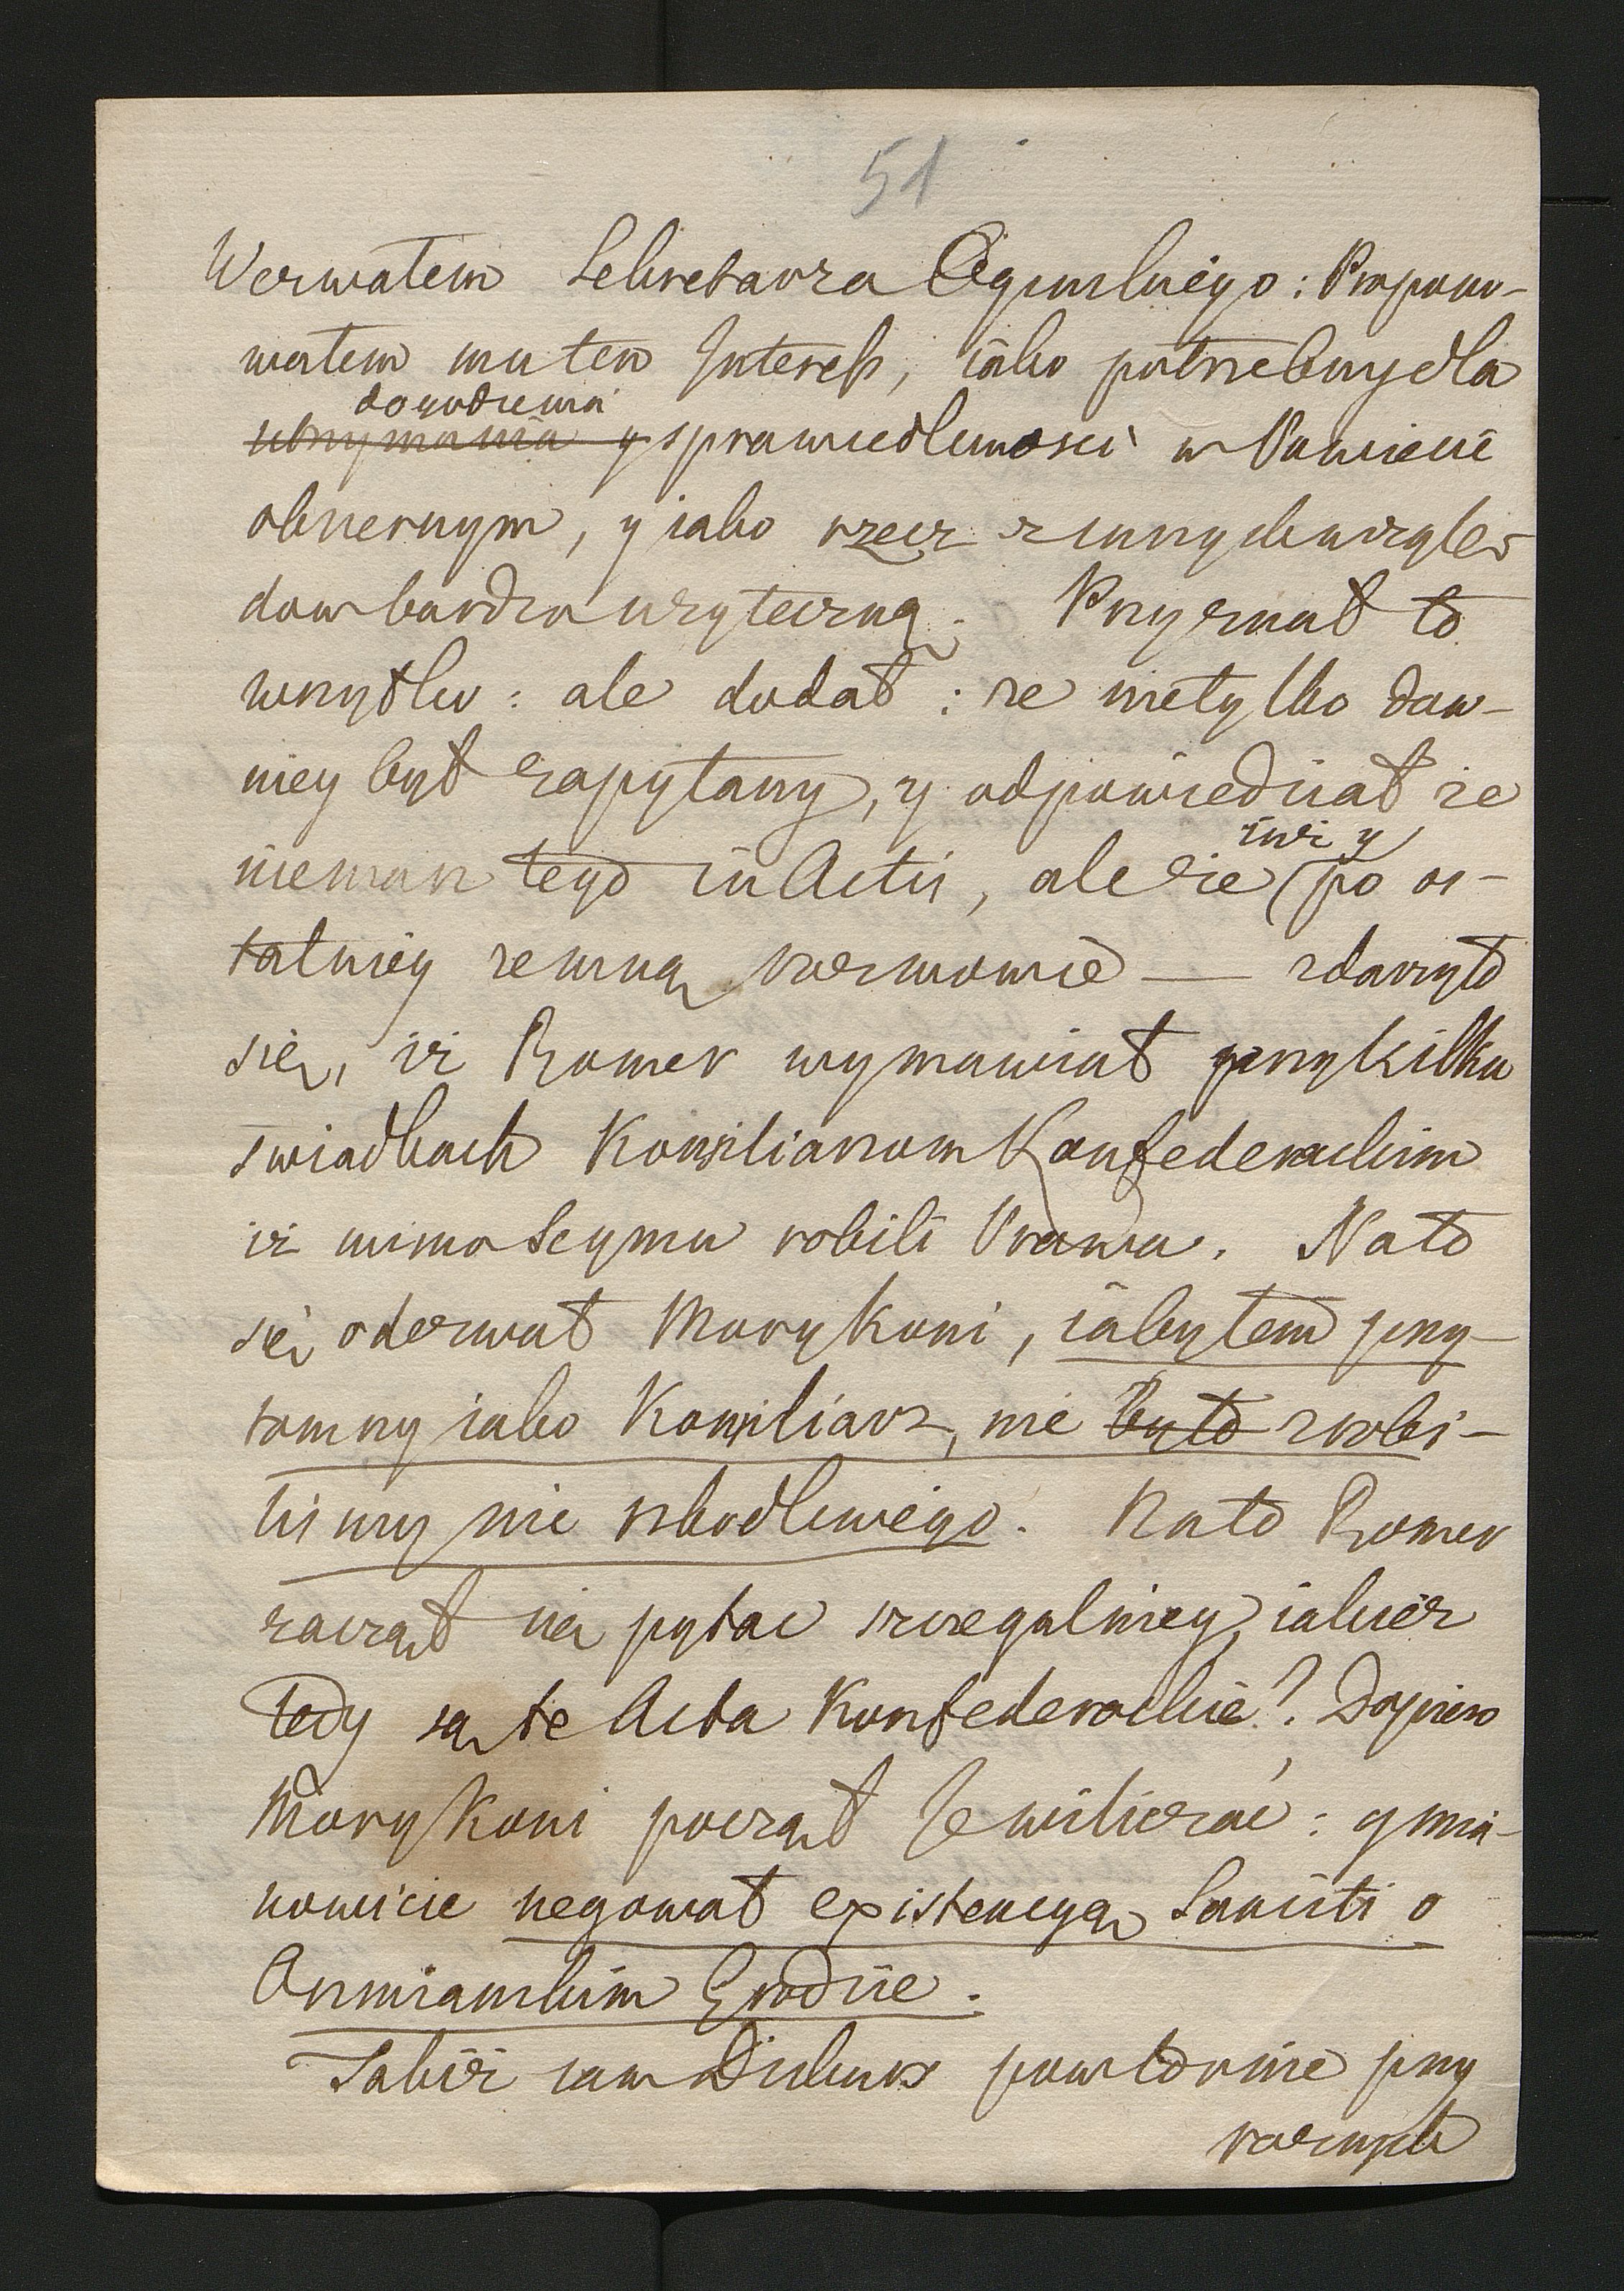 51
Wezwałem Sekretarza Ogińskiego: Propono-
wałem mu ten Interess, iako potrzebny dla
dogodzenia
utrzymania y sprawiedliwosci w Powiecie
obszernym, y iako rzecz z innych wzglę-
dow bardzo użyteczną. Przyznał to
wszystko: ale dodał: że nietylko daw-
niey był zapytany, y odpowiedział że
niemasz tego in Actis, ale że
iuż y
po os-
tatniey zemną rozmowie — zdarzyło
się, iż Romer wymawiał przy kilku
swiadkach Konsiliarzom Konfederackim
iż mimo Seymu robili Prawa. Na to
się odezwał Morykoni, ia byłem przy-
tomny iako Konsiliarz, nie było zrobi-
lismy nic szkodliwego. Na to Romer
zaczął się pytac szczegulniey, iakież
tedy są te Acta Konfederackie? Dopiero
Morykoni począł : y mia-
nowicie negował existencyą Sanciti o
Ormianskim Grodzie.
Takiż sam Diskurs powtornie przy
roznych